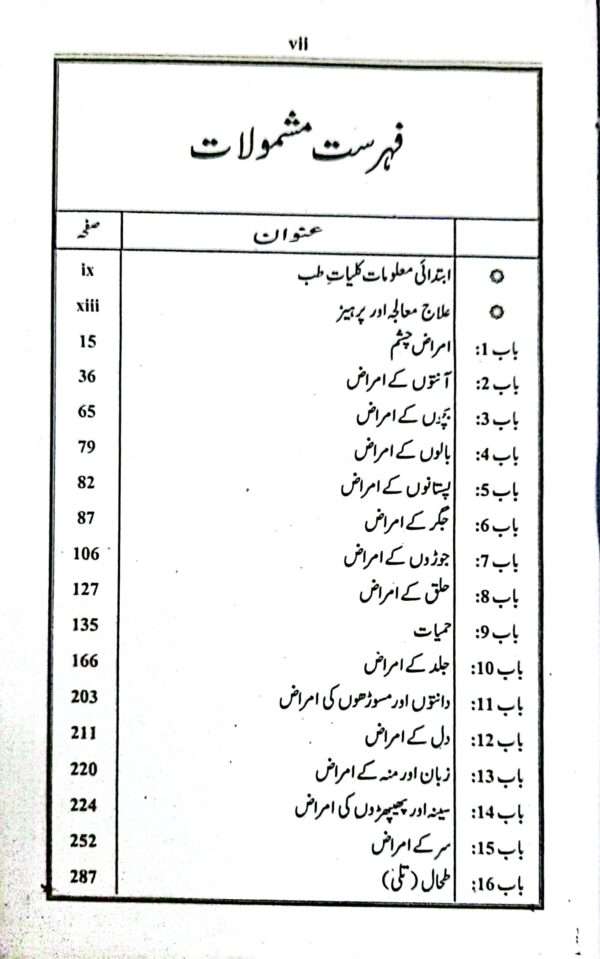 vii
فہرست مشمولات
عنوان صفحہ
ابتدائی معلومات کلیاتِ طب ix
علاج معالجہ اور پرہیز xiii
باب 1: امراض چشم 15
باب 2: آنتوں کے امراض 36
باب 3: بچّوں کے امراض 65
باب 4: بالوں کے امراض 79
باب 5: پستانوں کے امراض 82
باب 6: جگر کے امراض 87
باب 7: جوڑوں کے امراض 106
باب 8: حلق کے امراض 127
باب 9: حمیات 135
باب 10: جلد کے امراض 166
باب 11: دانتوں اور مسوڑھوں کی امراض 203
باب 12: دل کے امراض 211
باب 13: زبان اور منہ کے امراض 220
باب 14: سینہ اور پھیپھڑوں کی امراض 224
باب 15: سر کے امراض 252
باب 16: طحال (تلی) 287